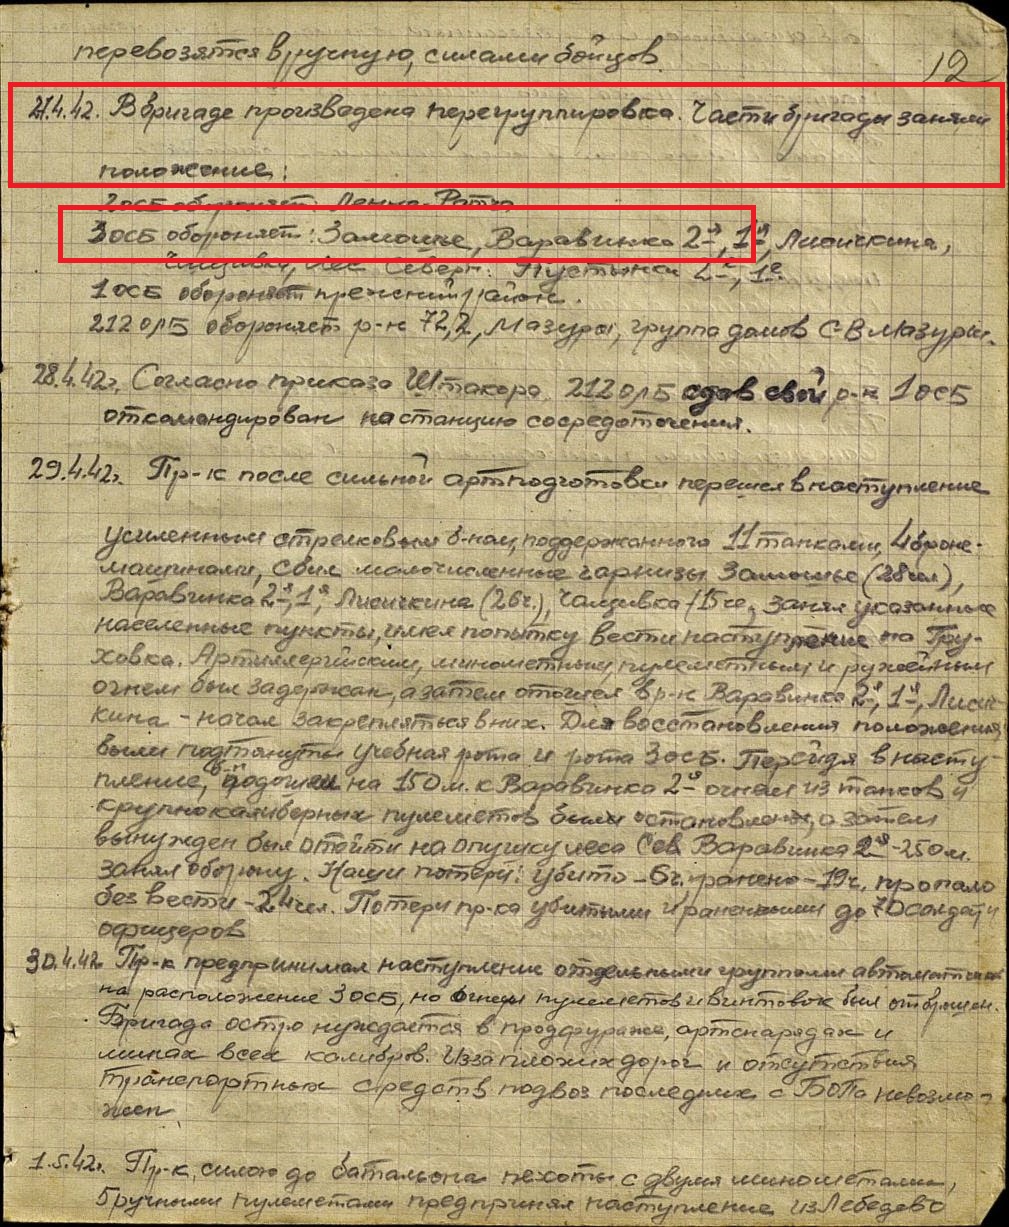 перевозятся вручную, силами бойцов.
12
27.4.42. В бригаде произведена перегруппировка. Части бригады заняли
положение:
2 ОСБ обороняет
3 ОСБ обороняет: Замошье, Варавинка 2-я, 1-я, Лисичкина,
лес Северн. Пустынки 2-е, 1-е.
1 ОСБ обороняет прежний район.
212 ОЛБ обороняет р-н 72,2, Мазуры, группа домов С-В Мазуры.
28.4.42г. Согласно приказа 212 ОЛБ сдав свой р-н 1 ОСБ
откомандирован на станцию сосредоточения.
29.4.42г. Пр-к после сильной артподготовки перешел в наступление
усиленным стрелковым б-ном, поддержанного 11 танками, 4 броне-
машинами, сбил малочисленные гарнизы Замошье (28 чел),
Варавинка 2-я, 1-я, Лисичкина (26 ч.), занял указанные
населенные пункты, имел попытку вести наступление на Гру-
ховка. Артиллерийским, минометным, пулеметным и ружейным
огнем был задержан, а затем отошел в р-н Варавинка 2-я, 1-я, Лиси-
кина - начал закрепляться в них. Для восстановления положения
были подтянуты учебная рота и рота 3 ОСБ. Перейдя в насту-
пление, на 150 м. к Варавинка 2-я огнем из танков и
крупнокалиберных пулеметов были остановлены, а затем
вынужден был отойти на опушку леса Сев Варавинка 2-я - 250 м.
занял оборону. Наши потери: убито - 6 ч. ранено - 19 ч. пропало
без вести - 24 чел. Потери пр-ка убитыми и ранеными до 70 солдат и
офицеров
30.4.42 Пр-к предпринимал наступление отдельными группами автоматчиков
на расположение 3 ОСБ, но огнем пулеметов и винтовок был отброшен.
Бригада остро нуждается в продфураже, артснарядах и
минах всех калибров. Из за плохих дорог и отсутствия
транспортных средств подвоз последних с БОПа невозмо-
жен
1.5.42г. Пр-к, силою до батальона пехоты с двумя минометами,
5 ручными пулеметами предпринял наступление из Лебедево